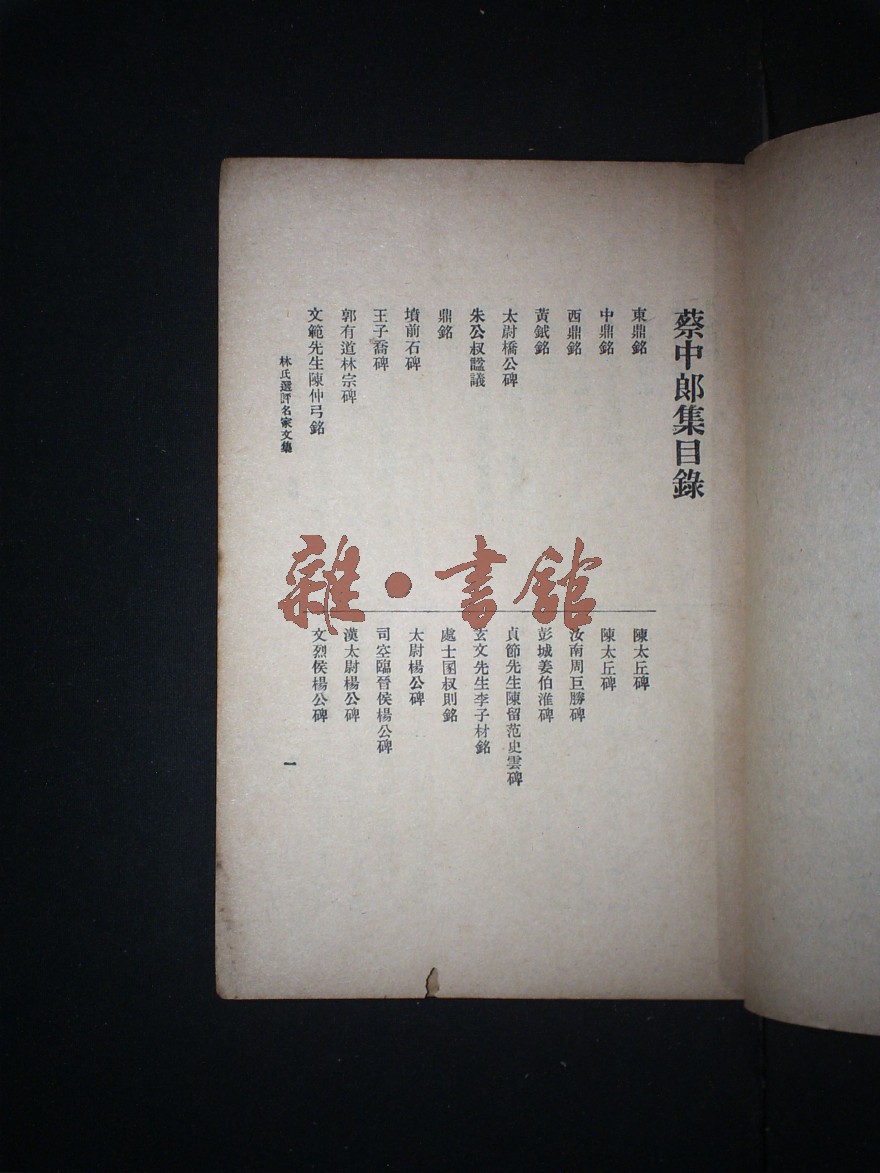 蔡中郎集目錄
東鼎銘
中鼎銘
西鼎銘
黃鉞銘
太尉橋公碑
朱公叔諡議
鼎銘
墳前石碑
王子喬碑
郭有道林宗碑
文範先生陳仲弓銘
陳太丘碑
陳太丘碑
汝南周巨勝碑
彭城姜伯淮碑
貞節先生陳留范史雲碑
玄文先生李子材銘
處士圂叔則銘
太尉楊公碑
司空臨晉侯楊公碑
漢太尉楊公碑
文烈侯楊公碑
林氏選評名家文集
一
雜·書館